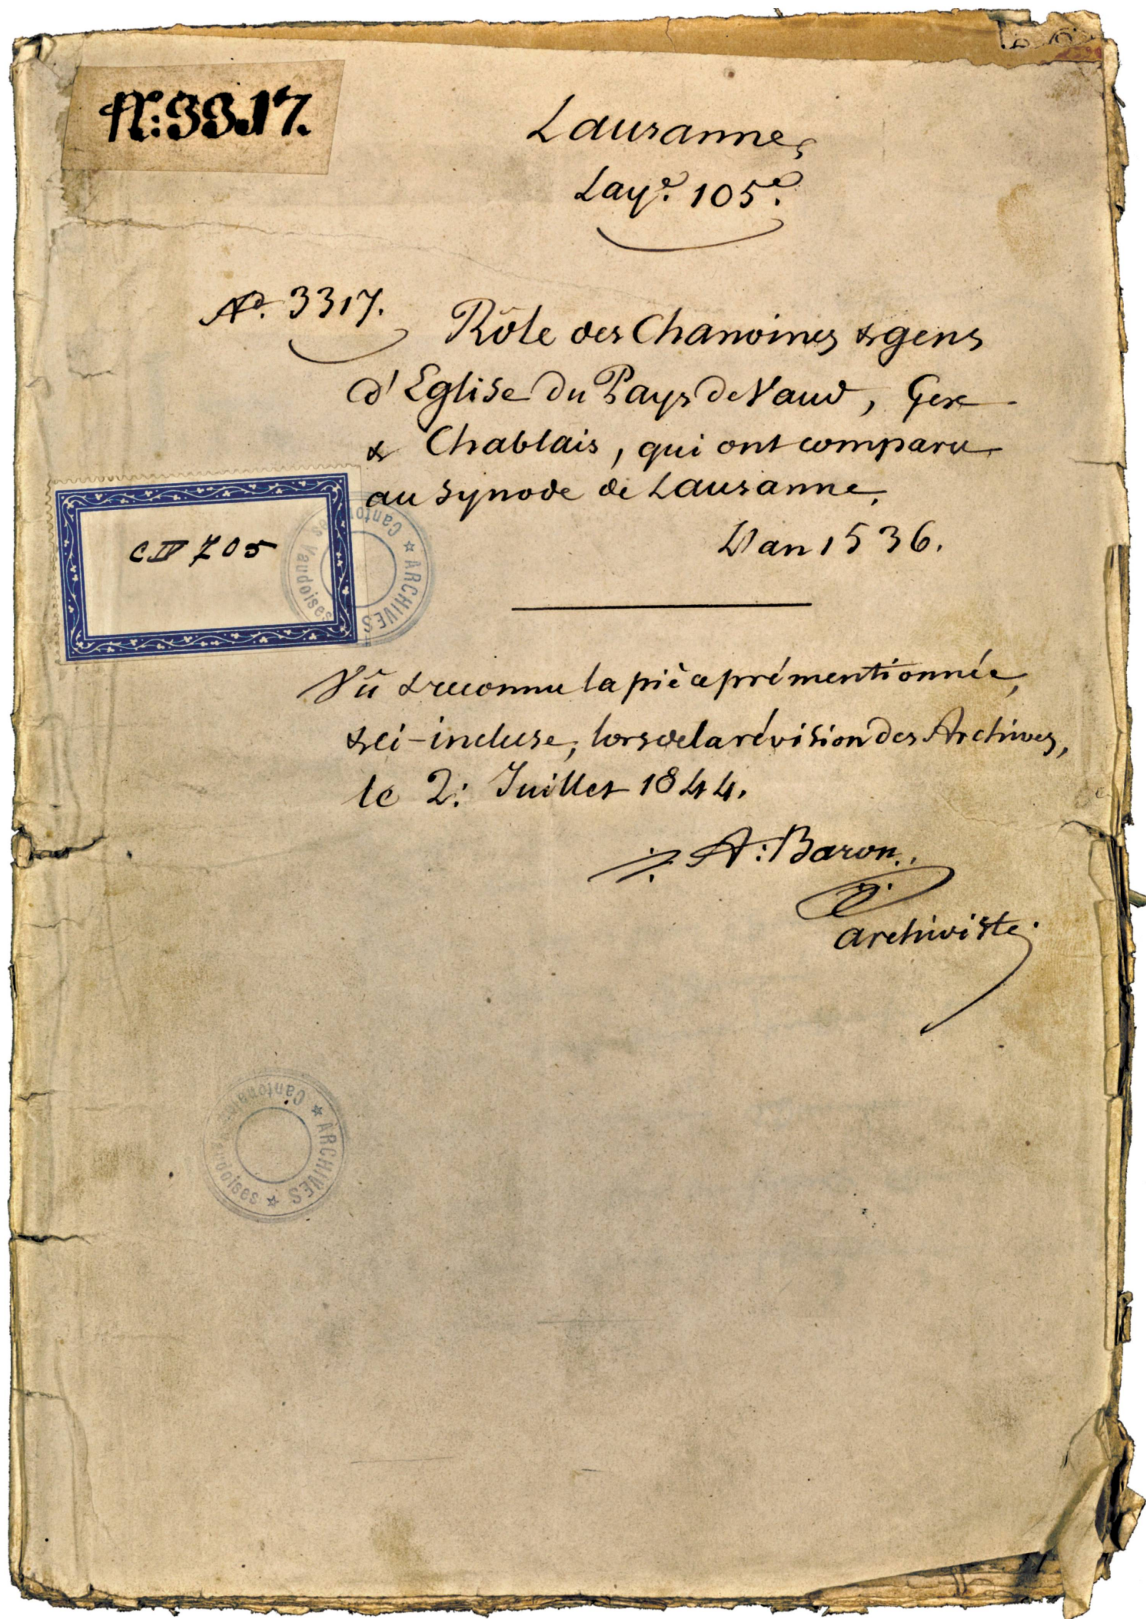 N.o: 3317.
Lausanne,
Lay.e 105.e
No. 3317.
Rôle des Chanoines & gens
d'Eglise du Pays de Vaud, Gex
& Chablais, qui ont comparu
au Synode de Lausanne,
L'an 1536.
C IV 705
ARCHIVES ★ Cantonales Vaudoises
Vû & reconnu la pièce prémentionnée,
& ci-incluse, lors de la révision des Archives,
le 2: Juillet 1844.
A: Baron.
archiviste.
ARCHIVES ★ Cantonales Vaudoises ★